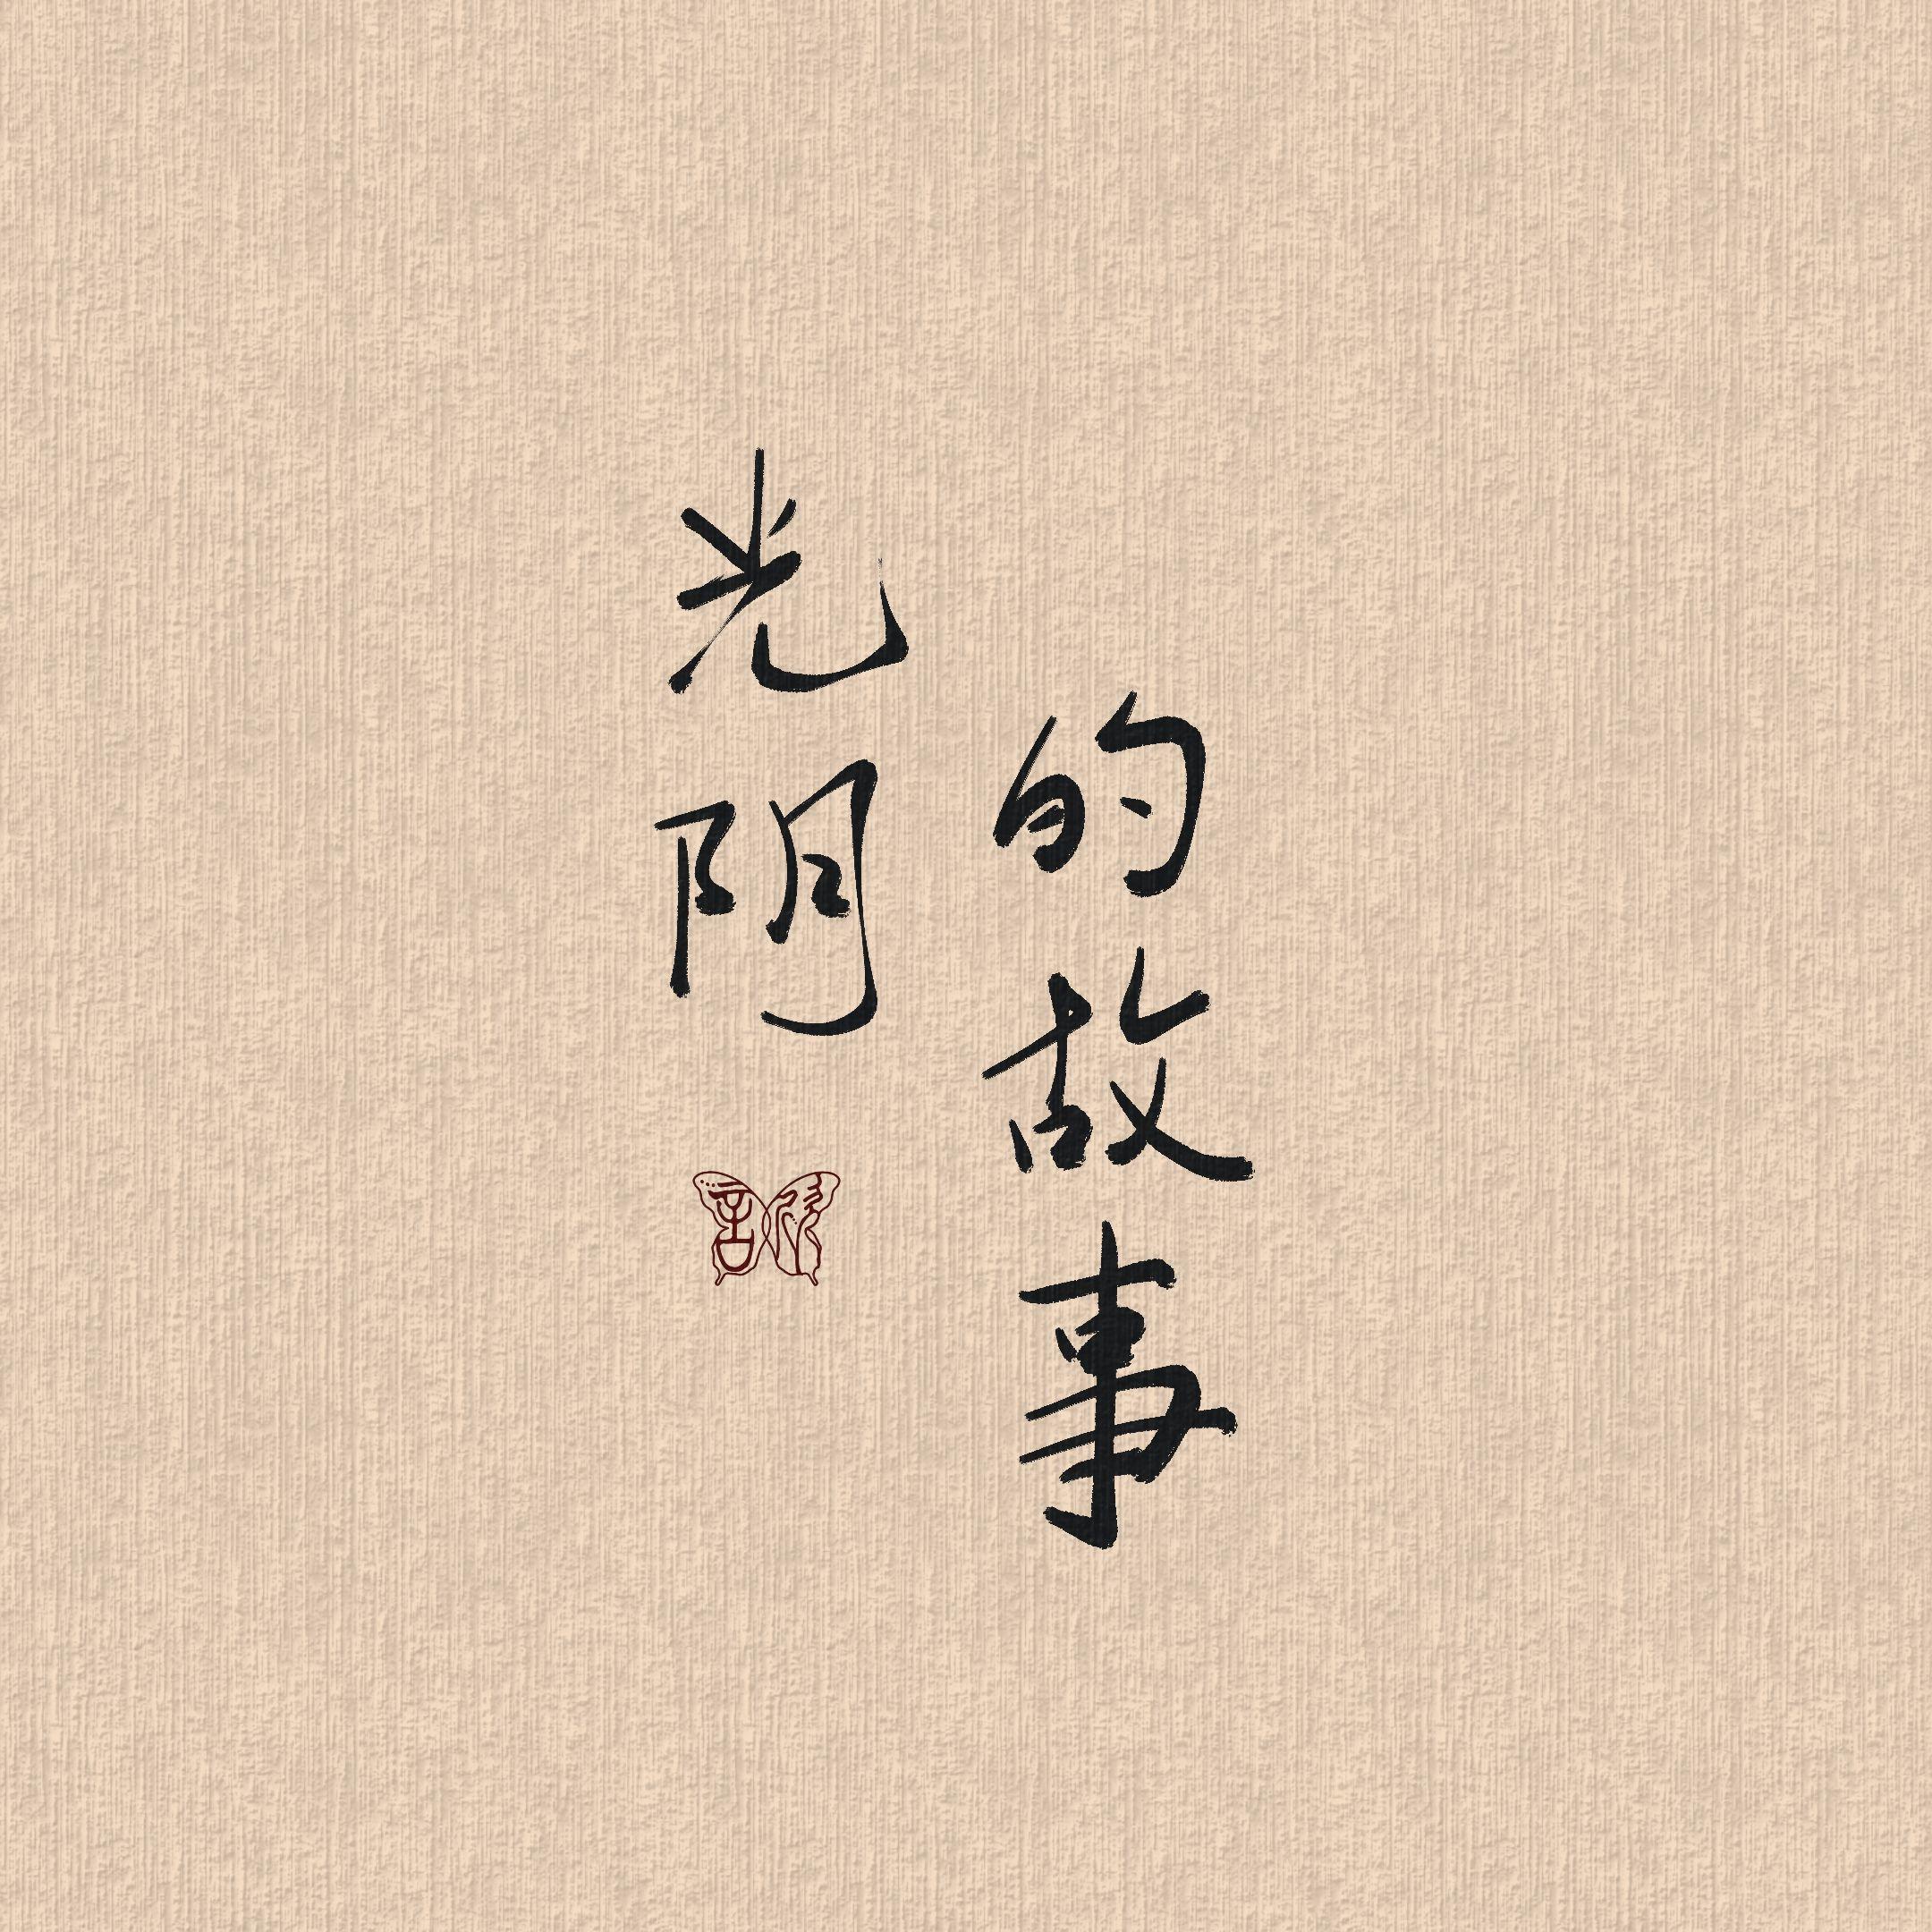 光阴
的故事